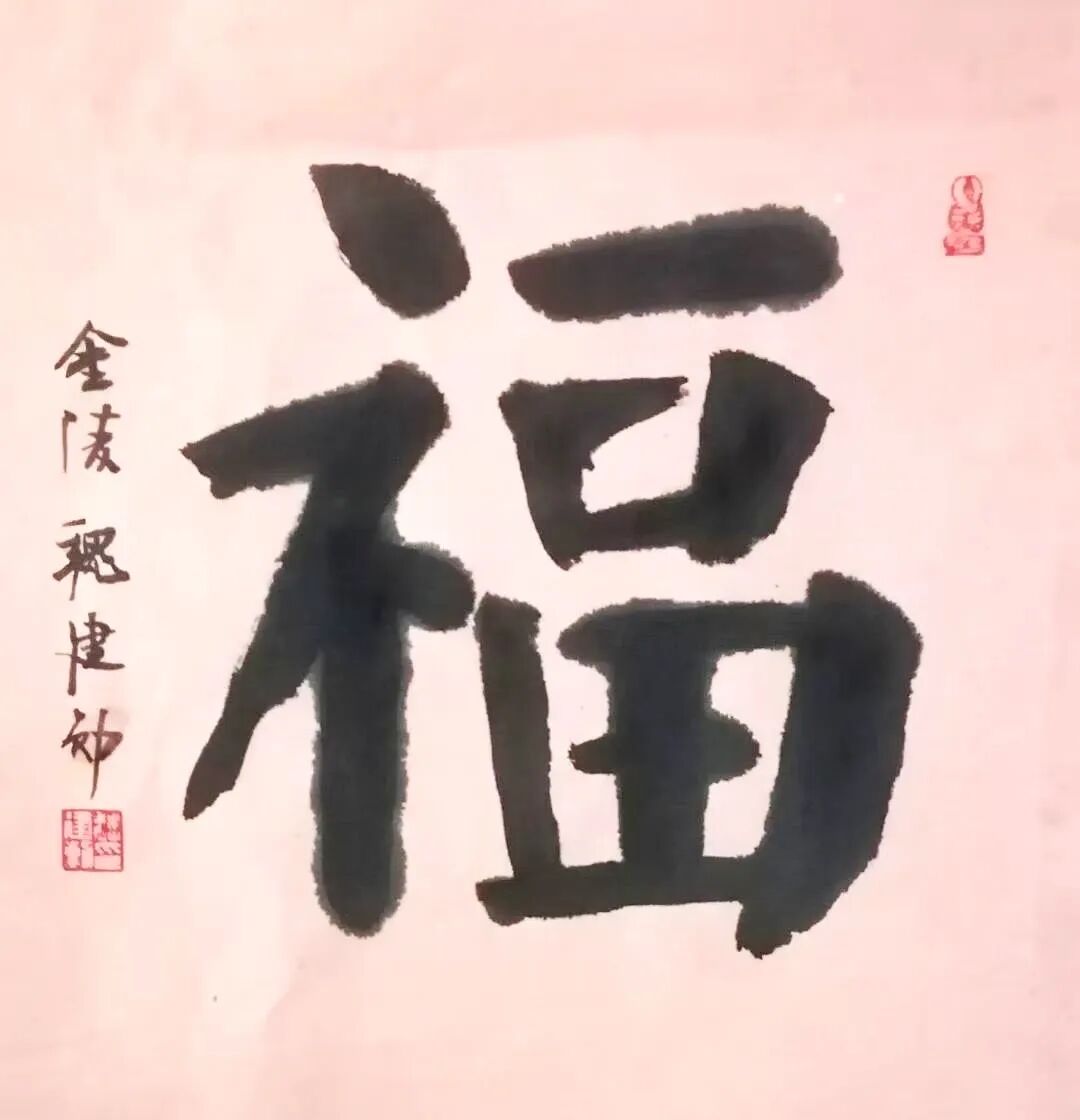 福
金陵魏建勋